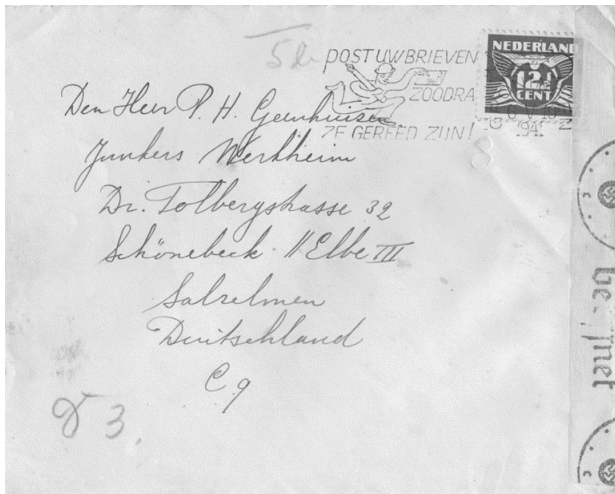 5
POST UW BRIEVEN
ZOODRA
ZE GEREED ZIJN!
NEDERLAND
12½
CENT
194
Den Heer P. H. Geenhuisen
Junkers Werkheim
Dr. Tolbergstrasse 32
Schönebeck // Elbe III
Salzelmen
Deutschland
C 9
3.
C
net
C